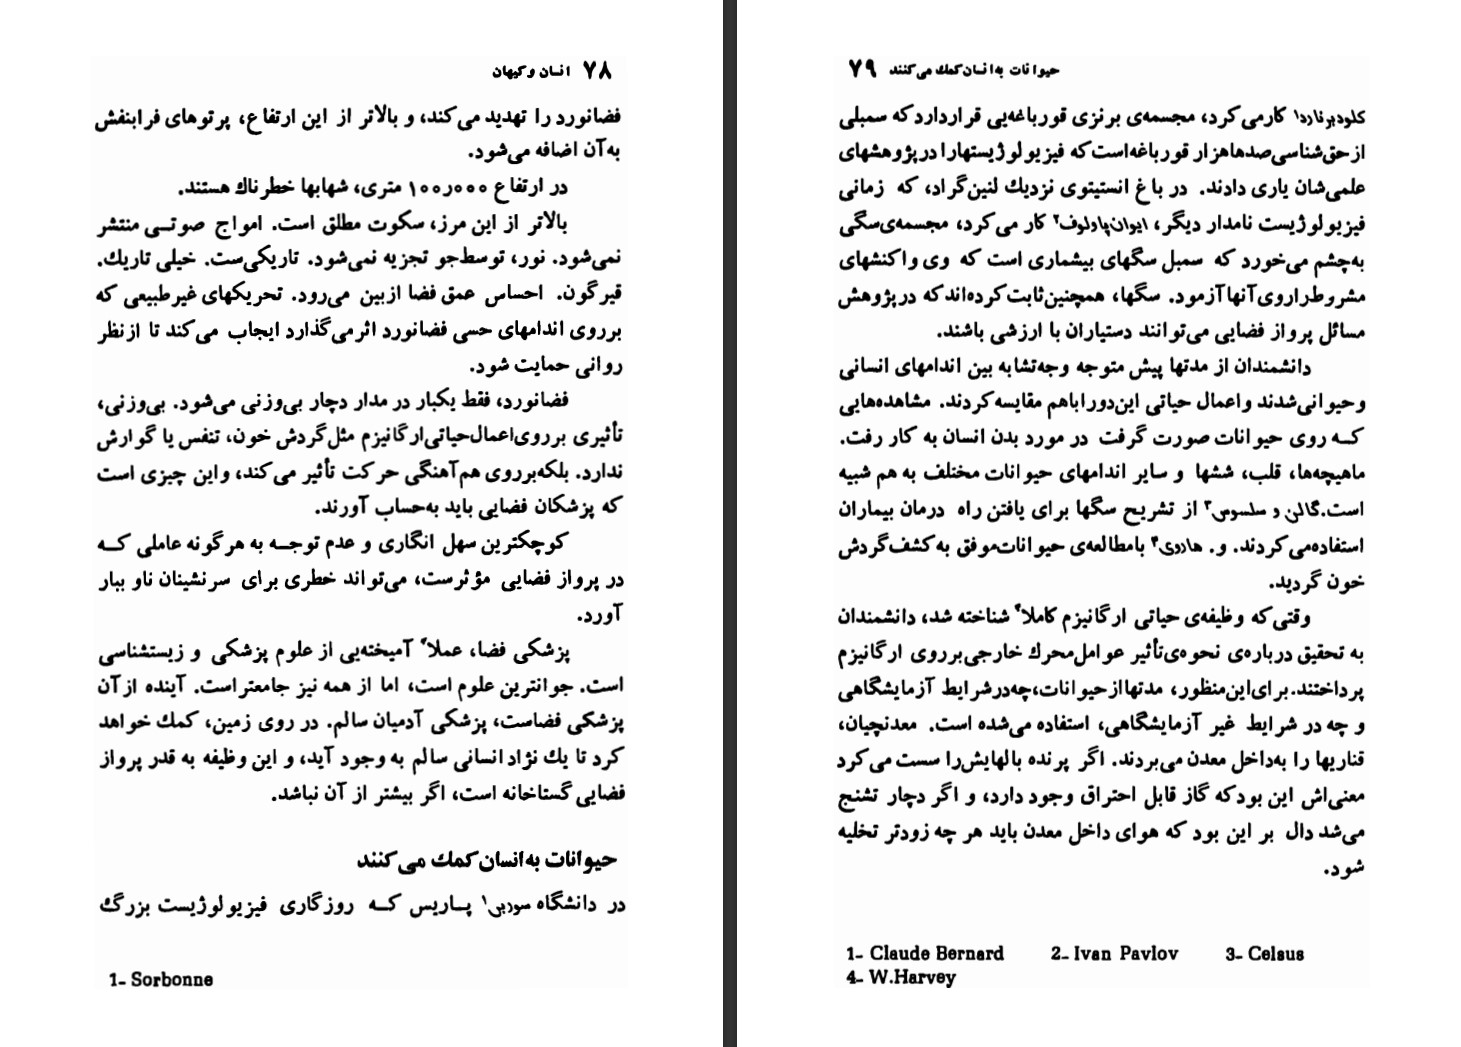 ۷۸ انسان و کیهان
فضانورد را تهدید می‌کند، و بالاتر از این ارتفاع، پرتوهای فرابنفش
به‌آن اضافه می‌شود.
در ارتفاع ۱۰۰ر۰۰۰ متری، شهابها خطرناك هستند.
بالاتر از این مرز، سکوت مطلق است. امواج صوتــی منتشر
نمی‌شود. نور، توسط‌جو تجزیه نمی‌شود. تاریکی‌ست. خیلی تاریك.
قیرگون. احساس عمق فضا ازبین می‌رود. تحریکهای غیرطبیعی که
برروی اندامهای حسی فضانورد اثرمی‌گذارد ایجاب می‌کند تا ازنظر
روانی حمایت شود.
فضانورد، فقط یکبار در مدار دچار بی‌وزنی می‌شود. بی‌وزنی،
تأثیری برروی‌اعمال‌حیاتی‌ارگانیزم مثل‌گردش خون، تنفس یا گوارش
ندارد. بلکه‌برروی هم‌آهنگی حرکت تأثیر می‌کند، واین چیزی است
که پزشکان فضایی باید به‌حساب آورند.
کوچکترین سهل انگاری و عدم توجــه به هرگونه عاملی کــه
در پرواز فضایی مؤثرست، می‌تواند خطری برای سرنشینان ناو ببار
آورد.
پزشکی فضا، عملاً آمیخته‌یی از علوم پزشکی و زیستشناسی
است. جوانترین علوم است، اما از همه نیز جامعتراست. آینده ازآن
پزشکی فضاست، پزشکی آدمیان سالم. در روی زمین، کمك خواهد
کرد تا یك نژاد انسانی سالم به وجود آید، و این وظیفه به قدر پرواز
فضایی گستاخانه است، اگر بیشتر از آن نباشد.
حیوانات به‌انسان‌کمك می‌کنند
در دانشگاه سوربن۱ پــاریس کــه روزگاری فیزیولوژیست بزرگ
1- Sorbonne
حیوانات به‌انسان‌کمك می‌کنند ۷۹
کلودبرنارد۱ کارمی‌کرد، مجسمه‌ی برنزی قورباغه‌یی قراردارد که سمبلی
ازحق‌شناسی‌صدهاهزار قورباغه‌است‌که فیزیولوژیستهارا درپژوهشهای
علمی‌شان یاری دادند. در باغ انستیتوی نزدیك لنین‌گراد، که زمانی
فیزیولوژیست نامدار دیگر، ایوان‌پاولوف۲ کار می‌کرد، مجسمه‌ی‌سگی
به‌چشم می‌خورد که سمبل سگهای بیشماری است که وی واکنشهای
مشروط‌راروی‌آنهاآزمود. سگها، همچنین‌ثابت‌کرده‌اندکه درپژوهش
مسائل پرواز فضایی می‌توانند دستیاران با ارزشی باشند.
دانشمندان از مدتها پیش متوجه وجه‌تشابه بین اندامهای انسانی
وحیوانی‌شدند واعمال حیاتی این‌دوراباهم مقایسه‌کردند. مشاهده‌هایی
کــه روی حیوانات صورت گرفت در مورد بدن انسان به کار رفت.
ماهیچه‌ها، قلب، ششها و سایر اندامهای حیوانات مختلف به هم شبیه
است.گالن و سلسوس۳ از تشریح سگها برای یافتن راه درمان بیماران
استفاده‌می‌کردند. و. هاروی۴ بامطالعه‌ی حیوانات‌موفق به‌کشف‌گردش
خون گردید.
وقتی‌که وظیفه‌ی حیاتی ارگانیزم کاملاً شناخته شد، دانشمندان
به تحقیق درباره‌ی نحوه‌ی‌تأثیر عوامل‌محرك خارجی‌برروی ارگانیزم
پرداختند.برای‌این‌منظور، مدتهاازحیوانات،چه‌درشرایط آزمایشگاهی
و چه در شرایط غیر آزمایشگاهی، استفاده می‌شده است. معدنچیان،
قناریها را به‌داخل معدن می‌بردند. اگر پرنده بالهایش‌را سست می‌کرد
معنی‌اش این بودکه گاز قابل احتراق وجود دارد، و اگر دچار تشنج
می‌شد دال بر این بود که هوای داخل معدن باید هر چه زودتر تخلیه
شود.
1- Claude Bernard 2- Ivan Pavlov 3- Celsus
4- W.Harvey